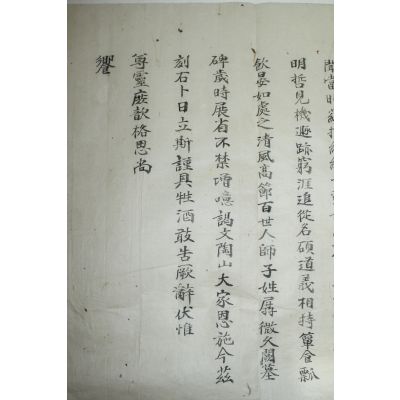 明哲見機遯跡窮涯追從名碩道義相持簞食瓢
飮晏如處之清風高節百世人師子姓孱微久闕墓
碑歲時展省不禁噫謁文陶山大家恩施今玆
刻石卜日立斯謹具牲酒敢告厥辭伏惟
尊靈庶歆格思尙
饗